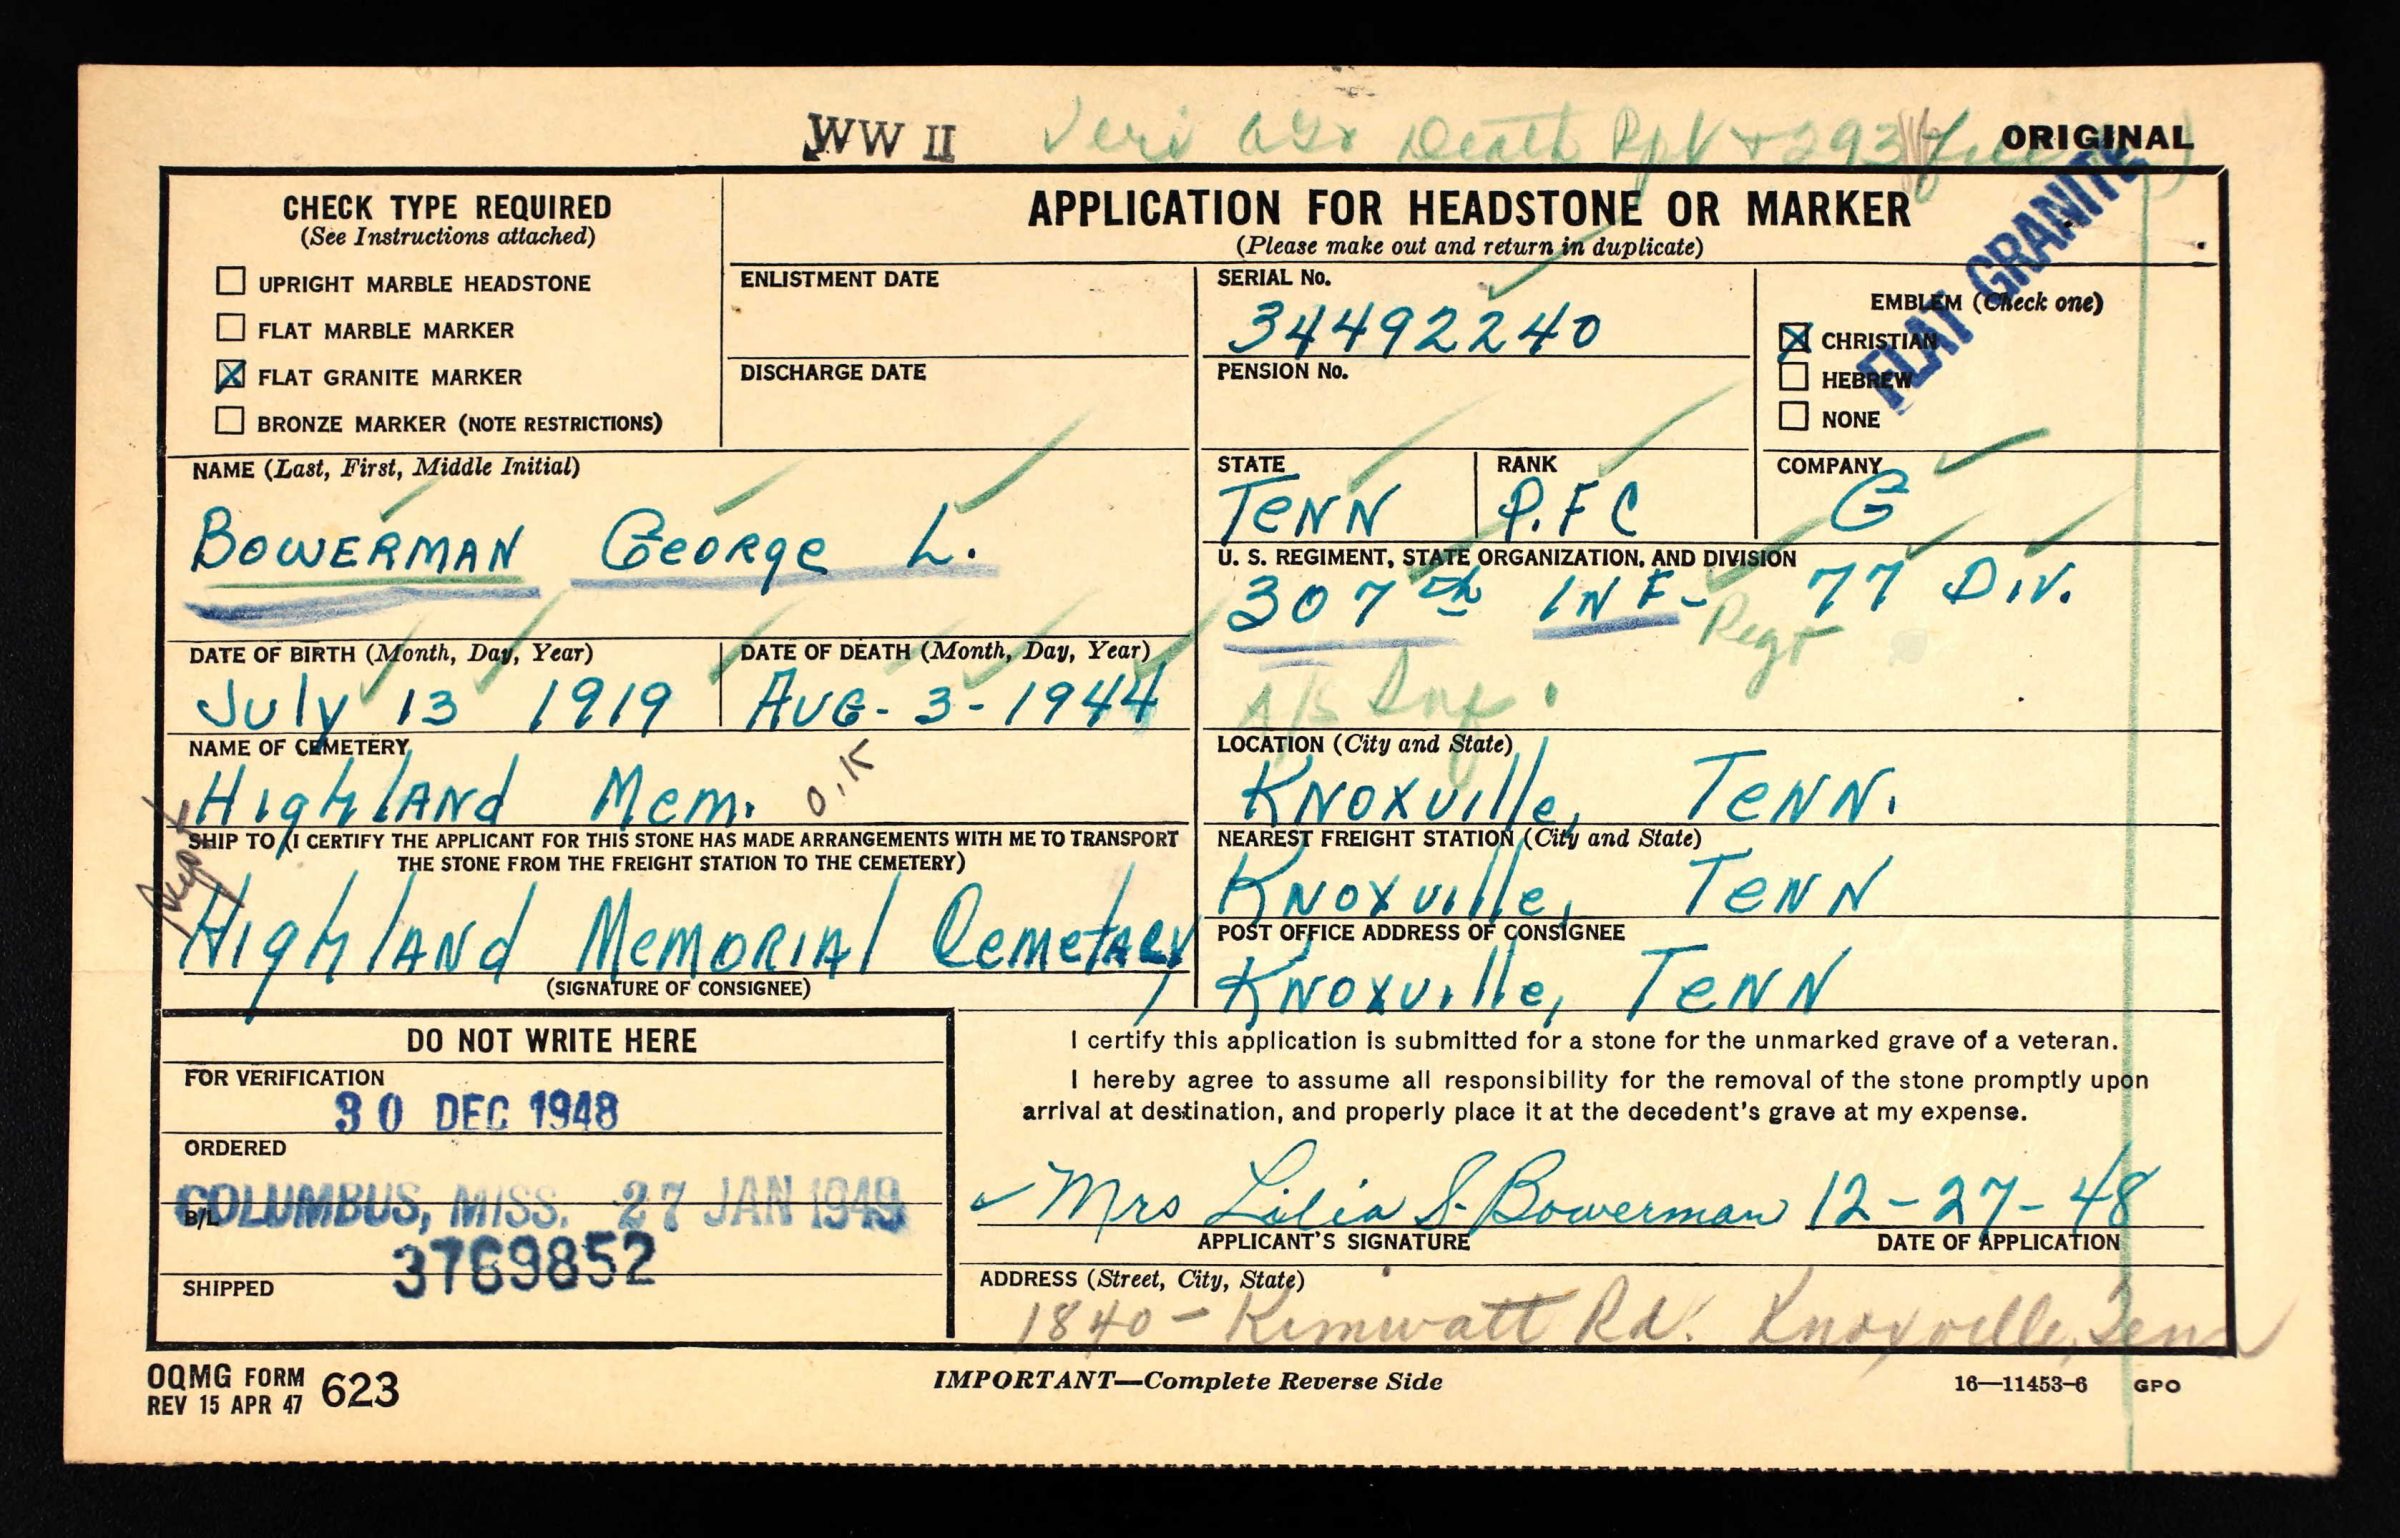 WW II Veri Death Rpt + 293 file
ORIGINAL
FLAT GRANITE
CHECK TYPE REQUIRED
(See Instructions attached)
UPRIGHT MARBLE HEADSTONE
FLAT MARBLE MARKER
X FLAT GRANITE MARKER
BRONZE MARKER (NOTE RESTRICTIONS)
APPLICATION FOR HEADSTONE OR MARKER
(Please make out and return in duplicate)
ENLISTMENT DATE
DISCHARGE DATE
SERIAL No.
34492240
PENSION No.
EMBLEM (Check one)
X CHRISTIAN
HEBREW
NONE
NAME (Last, First, Middle Initial)
BOWERMAN George L.
STATE
TENN
RANK
P.F.C
COMPANY
G
U. S. REGIMENT, STATE ORGANIZATION, AND DIVISION
307th INF- 77 DIV.
Regt
Inf.
DATE OF BIRTH (Month, Day, Year)
July 13 1919
DATE OF DEATH (Month, Day, Year)
AUG-3-1944
NAME OF CEMETERY
HighlAND Mem. O.K
LOCATION (City and State)
KNOXville, TENN.
SHIP TO (I CERTIFY THE APPLICANT FOR THIS STONE HAS MADE ARRANGEMENTS WITH ME TO TRANSPORT
THE STONE FROM THE FREIGHT STATION TO THE CEMETERY)
HighlAND MeMORIAl CemetARy
(SIGNATURE OF CONSIGNEE)
NEAREST FREIGHT STATION (City and State)
KNOXville, TENN
POST OFFICE ADDRESS OF CONSIGNEE
KNOXville, TENN
DO NOT WRITE HERE
FOR VERIFICATION
30 DEC 1948
ORDERED
COLUMBUS, MISS. 27 JAN 1949
B/L
3769852
SHIPPED
I certify this application is submitted for a stone for the unmarked grave of a veteran.
I hereby agree to assume all responsibility for the removal of the stone promptly upon
arrival at destination, and properly place it at the decedent's grave at my expense.
Mrs Lilia S. Bowerman 12-27-48
APPLICANT'S SIGNATURE
DATE OF APPLICATION
ADDRESS (Street, City, State)
1840 - Kimwatt Rd. Knoxville, Tenn
OQMG FORM 623
REV 15 APR 47
IMPORTANT—Complete Reverse Side
16—11453-6 GPO